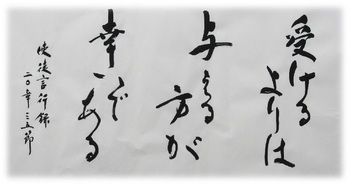 受けるよりは
与える方が
幸いである
使徒言行録
二〇章三五節